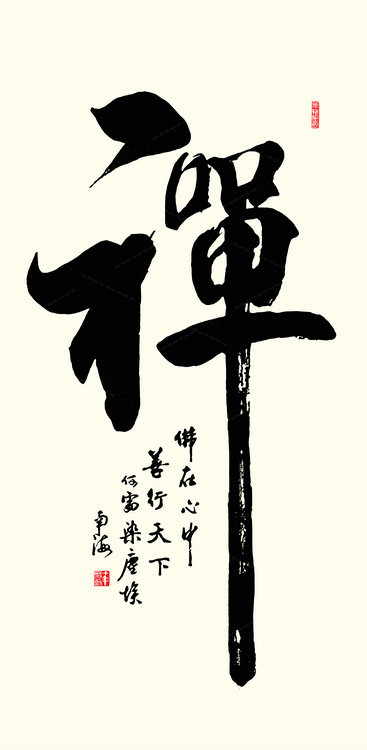 禪
佛在心中
善行天下
何染塵埃
南海